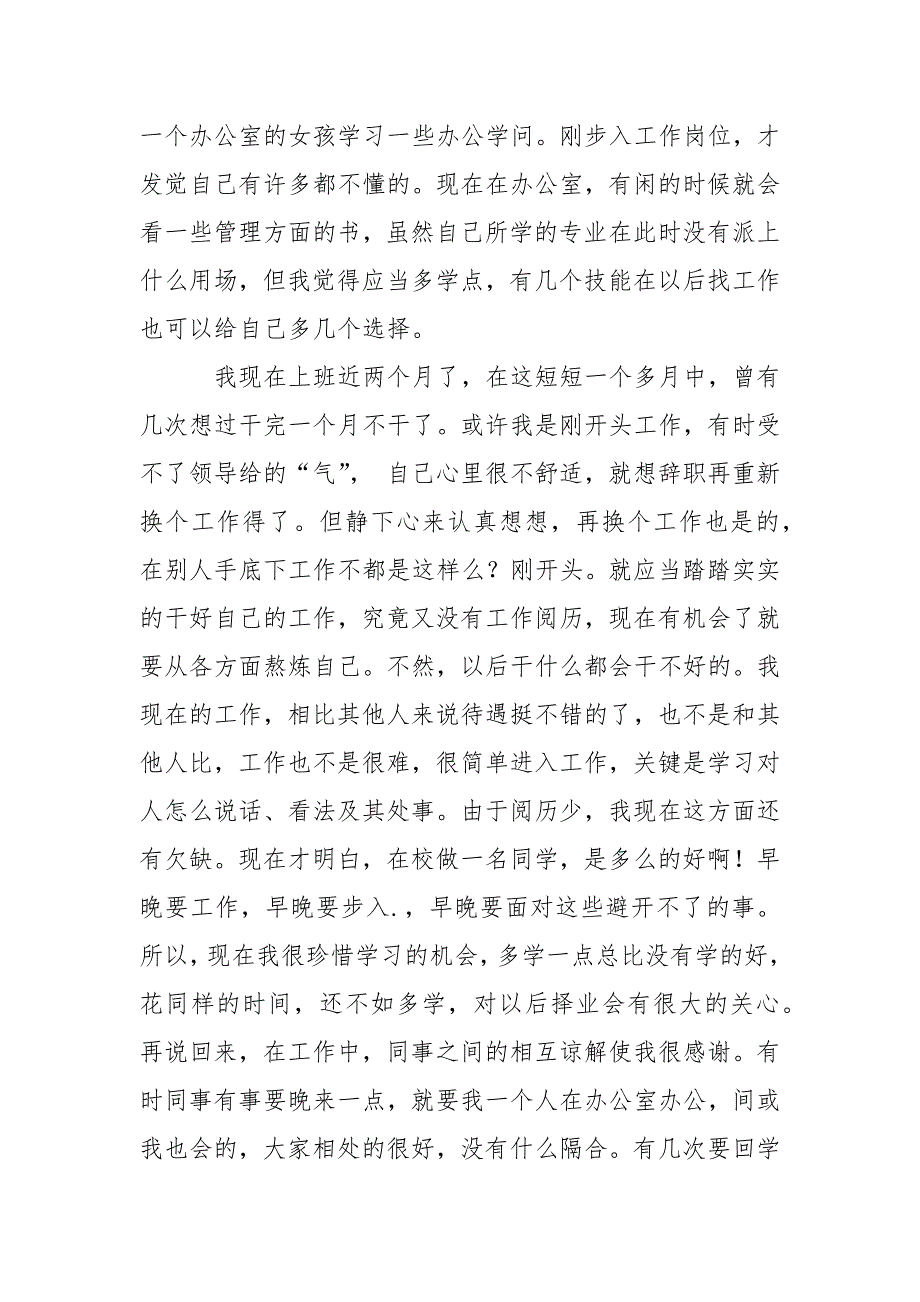 一个办公室的女孩学习一些办公学问。刚步入工作岗位，才
发觉自己有许多都不懂的。现在在办公室，有闲的时候就会
看一些管理方面的书，虽然自己所学的专业在此时没有派上
什么用场，但我觉得应当多学点，有几个技能在以后找工作
也可以给自己多几个选择。
我现在上班近两个月了，在这短短一个多月中，曾有
几次想过干完一个月不干了。或许我是刚开头工作，有时受
不了领导给的“气”， 自己心里很不舒适，就想辞职再重新
换个工作得了。但静下心来认真想想，再换个工作也是的，
在别人手底下工作不都是这样么？刚开头。就应当踏踏实实
的干好自己的工作，究竟又没有工作阅历，现在有机会了就
要从各方面熬炼自己。不然，以后干什么都会干不好的。我
现在的工作，相比其他人来说待遇挺不错的了，也不是和其
他人比，工作也不是很难，很简单进入工作，关键是学习对
人怎么说话、看法及其处事。由于阅历少，我现在这方面还
有欠缺。现在才明白，在校做一名同学，是多么的好啊！早
晚要工作，早晚要步入.，早晚要面对这些避开不了的事。
所以，现在我很珍惜学习的机会，多学一点总比没有学的好，
花同样的时间，还不如多学，对以后择业会有很大的关心。
再说回来，在工作中，同事之间的相互谅解使我很感谢。有
时同事有事要晚来一点，就要我一个人在办公室办公，间或
我也会的，大家相处的很好，没有什么隔合。有几次要回学